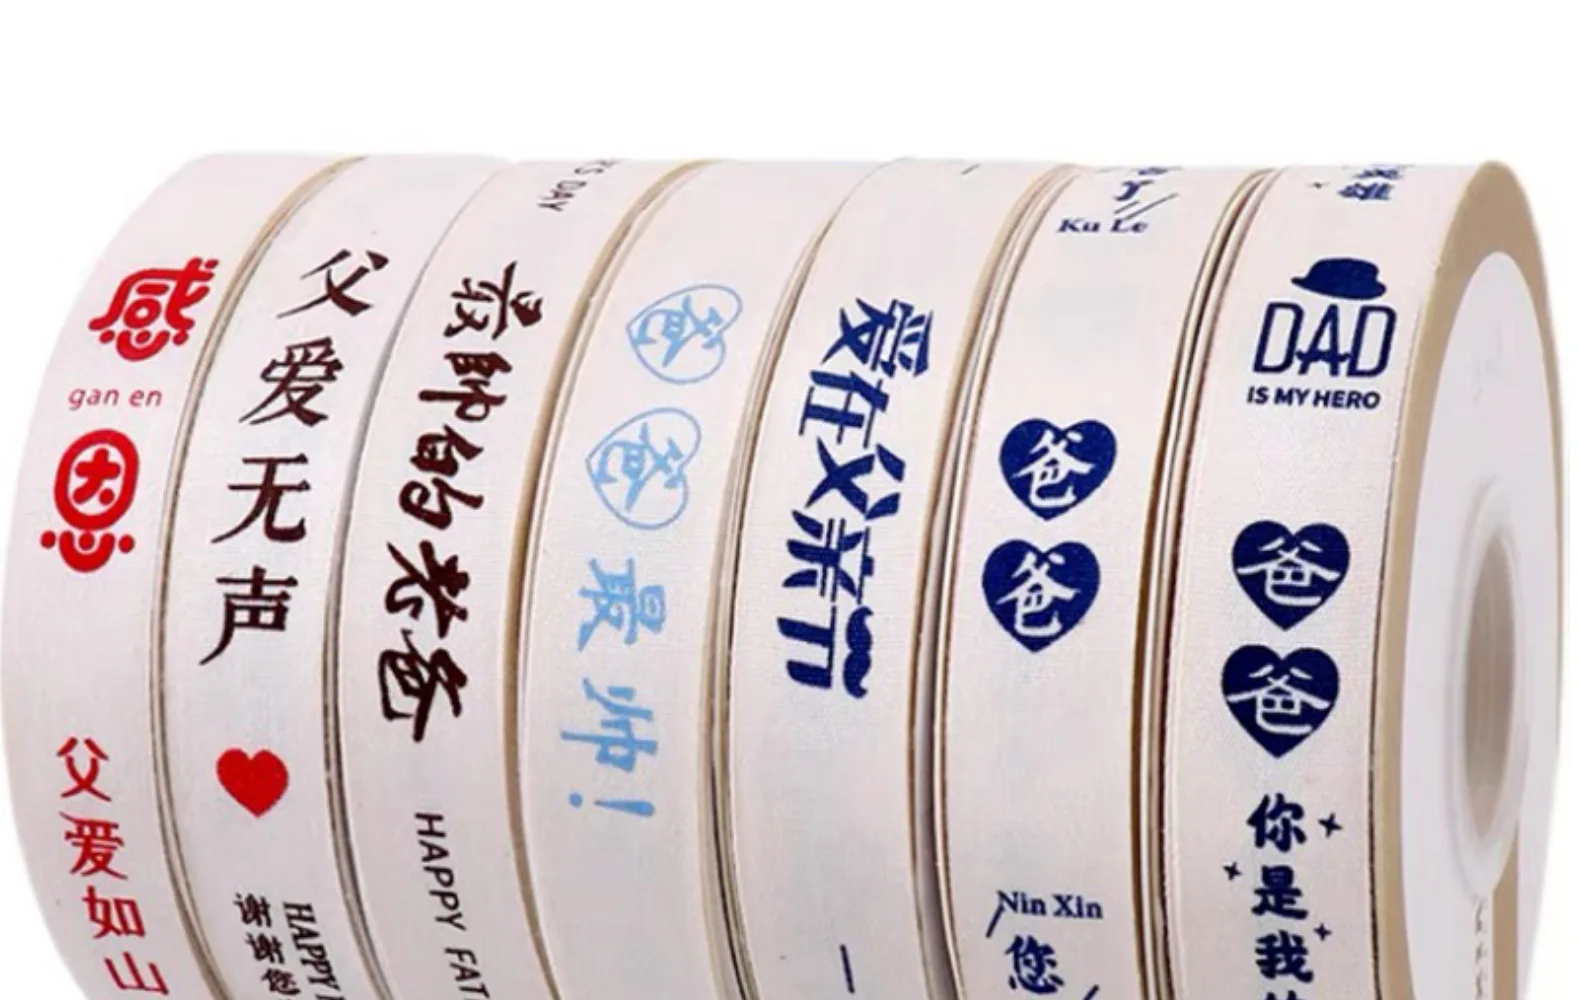 感
gan en
恩
父爱如山
父爱无声
HAPPY
谢谢您
'S DAY
最帅的老爸
HAPPY FAT
爸爸最帅!
爱在父亲节
Ku Le
爸爸
Nin Xin
您
DAD
IS MY HERO
爸爸
你是我